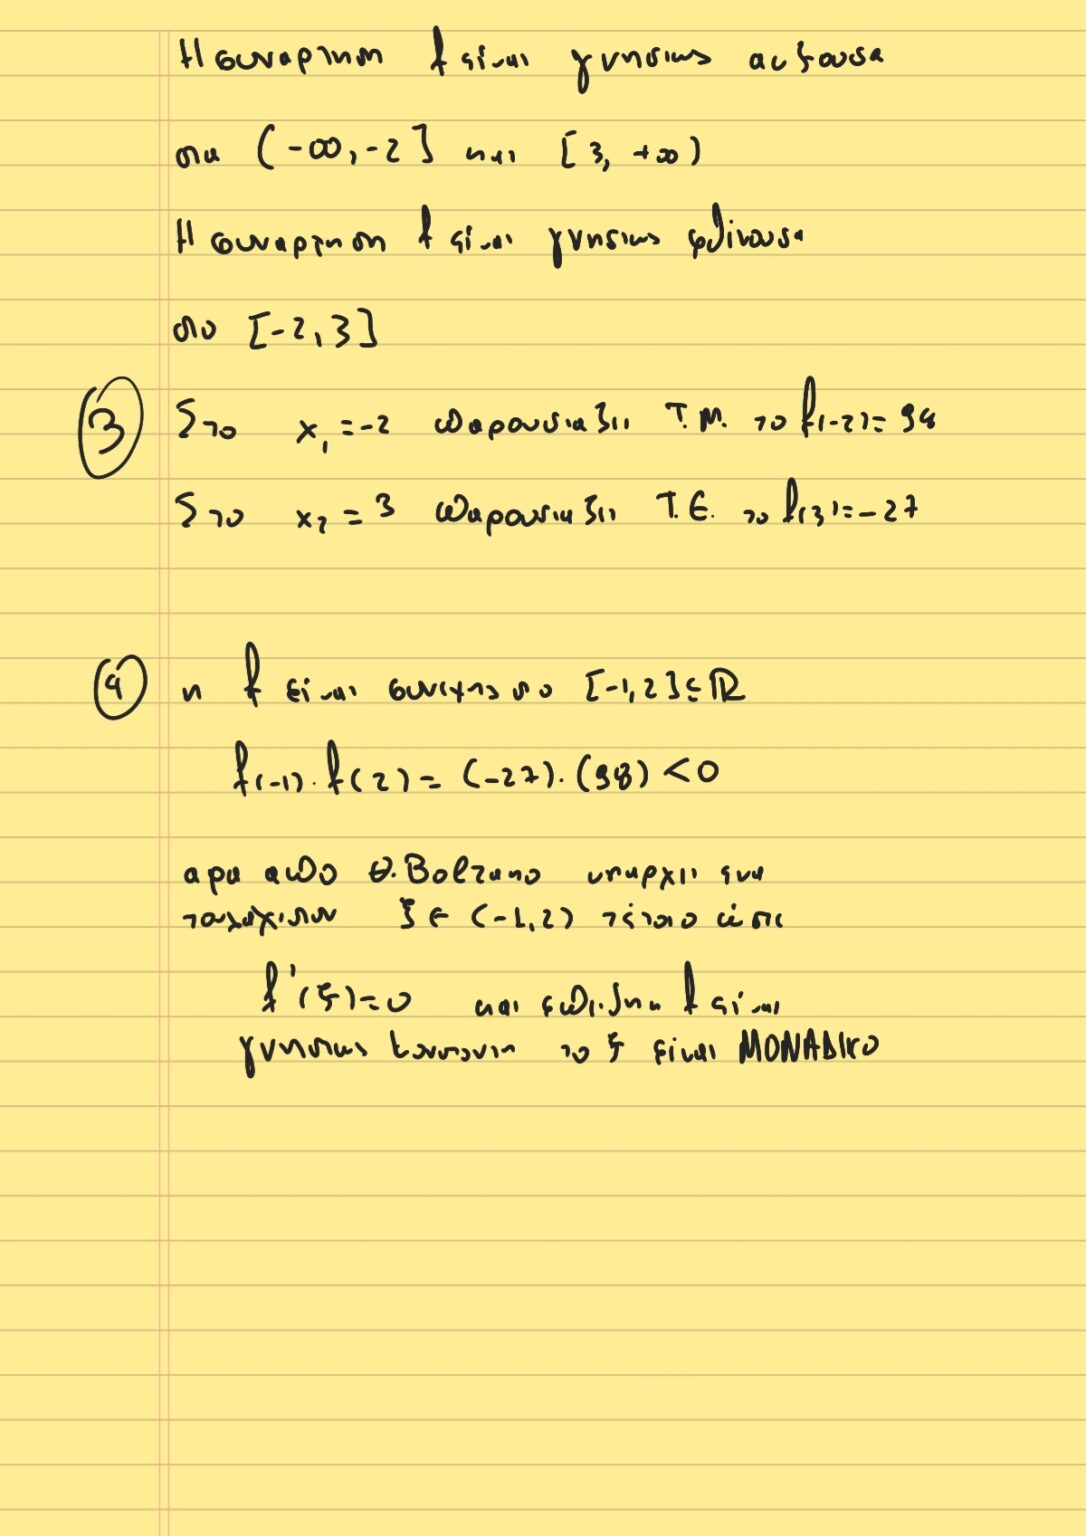 Η συναρτηση f είναι γνησιως αυξουσα
στα (-∞,-2] και [3, +∞)
Η συναρτηση f είναι γνησιως φθίνουσα
στο [-2,3]
③ Στο x₁=-2 παρουσιαζει Τ.Μ. το f(-2)=98
Στο x₂=3 παρουσιαζει Τ.Ε. το f(3)=-27
④ η f είναι συνεχης στο [-1,2]⊆ℝ
f(-1)·f(2)=(-27)·(98)<0
αρα απο Θ.Bolzano υπαρχει ενα
τουλαχιστον ξ∈(-1,2) τέτοιο ώστε
f'(ξ)=0 και επειδη η f είναι
γνησιως μονοτονη το ξ είναι ΜΟΝΑΔΙΚΟ